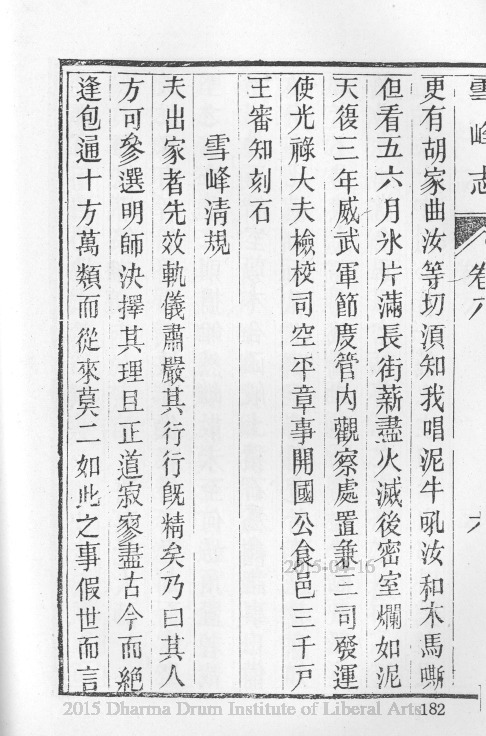 雪峰志 卷八 六
更有胡家曲汝等切須知我唱泥牛吼汝和木馬嘶
但看五六月氷片滿長街薪盡火滅後密室爛如泥
天復三年威武軍節度管內觀察處置兼三司發運
使光祿大夫檢校司空平章事開國公食邑三千戸
王審知刻石
雪峰清規
夫出家者先效軌儀肅嚴其行行旣精矣乃曰其人
方可參選明師決擇其理且正道寂寥盡古今而絕
逢包通十方萬類而從來莫二如此之事假世而言
2015-04-16
2015 Dharma Drum Institute of Liberal Arts
182